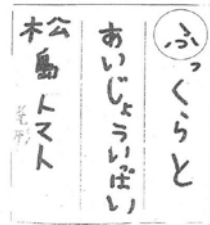 ふっくらと
あいじょういっぱい
松島トマト